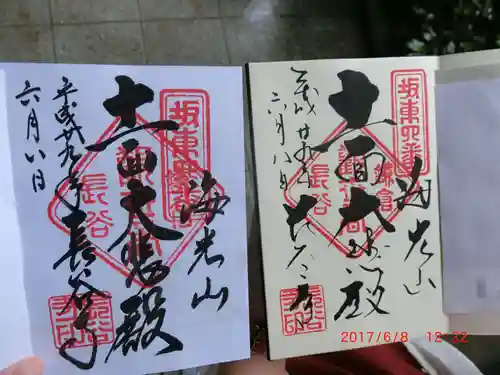 坂東四番
海光山
十一面大悲殿
長谷
平成廿九年
長谷寺
六月八日
坂東四番
海光山
十一面大悲殿
鎌倉
長谷
平成廿九年
長谷寺
六月八日
2017/6/8 12:32